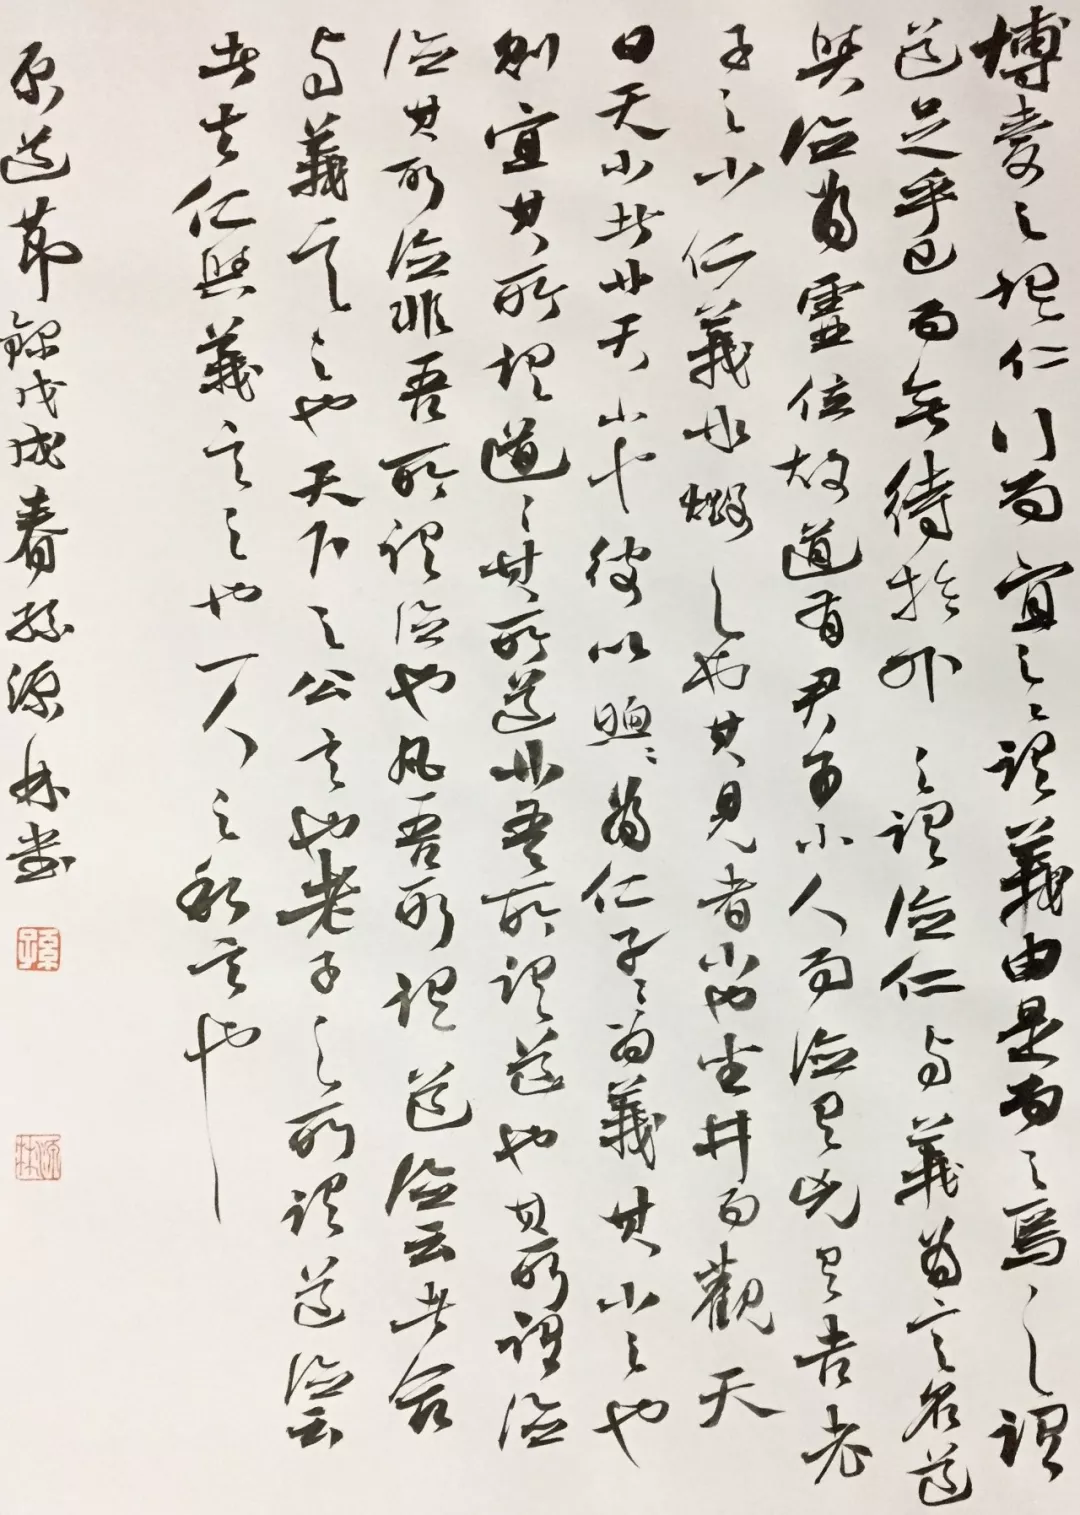 博愛之謂仁行而宜之〻謂義由是而之焉之謂
道足乎己而無待於外之謂德仁与義為定名道
與德為虛位故道有君子小人而德有凶有吉老
子之小仁義非毀之也其見者小也坐井而觀天
曰天小者非天小也彼以煦〻為仁孑〻為義其小之也
則宜其所謂道〻其所道非吾所謂道也其所謂德
德其所德非吾所謂德也凡吾所謂道德云者合
与義言之也天下之公言也老子之所謂道德云
者去仁與義言之也一人之私言也
原道節錄戊戌春孫源林書
孫
源林